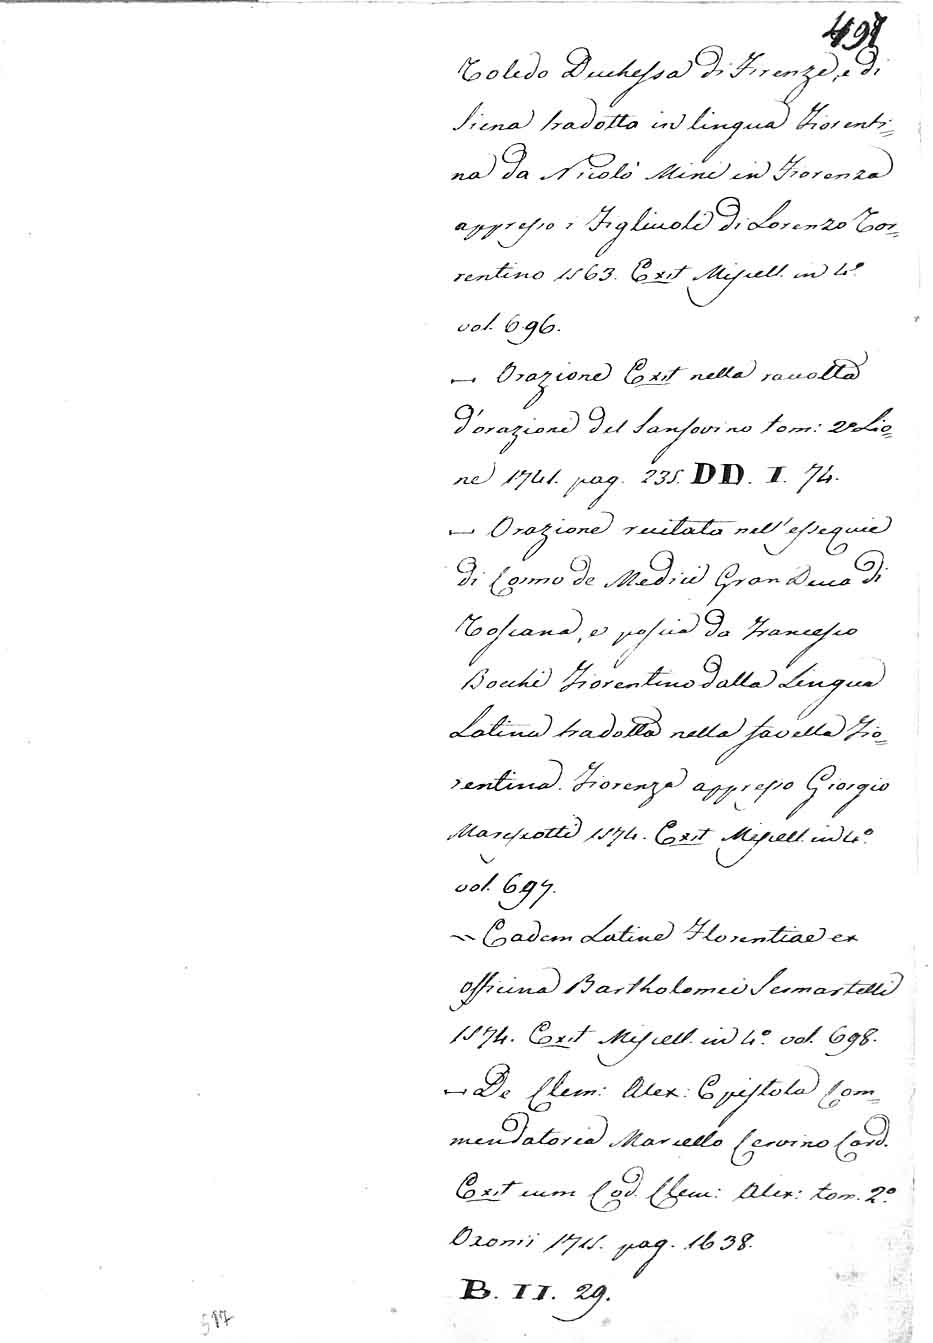 497
Toledo Duchessa di Firenze, e di
Siena tradotta in lingua Fiorenti=
na da Nicolò Mini in Fiorenza
appresso i Figliuoli di Lorenzo Tor=
rentino 1563. Exit Miscell. in 4.º
vol. 696.
— Orazione Exit nella raccolta
d'orazioni del Sansovino tom: 2º Lio=
ne 1741. pag. 235. DD. I. 74.
— Orazione recitata nell'essequie
di Cosmo de Medici Gran Duca di
Toscana, e poscia da Francesco
Bocchi Fiorentino dalla Lingua
Latina tradotta nella favella Fio=
rentina. Fiorenza appresso Giorgio
Marescotti 1574. Exit Miscell. in 4.º
vol. 697.
— Eadem Latine Florentiae ex
officina Bartholomei Sermartelli
1574. Exit Miscell. in 4.º vol. 698.
— De Clem: Alex: Epistola Com=
mendatoria Marcello Cervino Card.
Exit cum Cod. Clem: Alex: tom. 2.º
Oxonii 1715. pag. 1638.
B. II. 29.
517